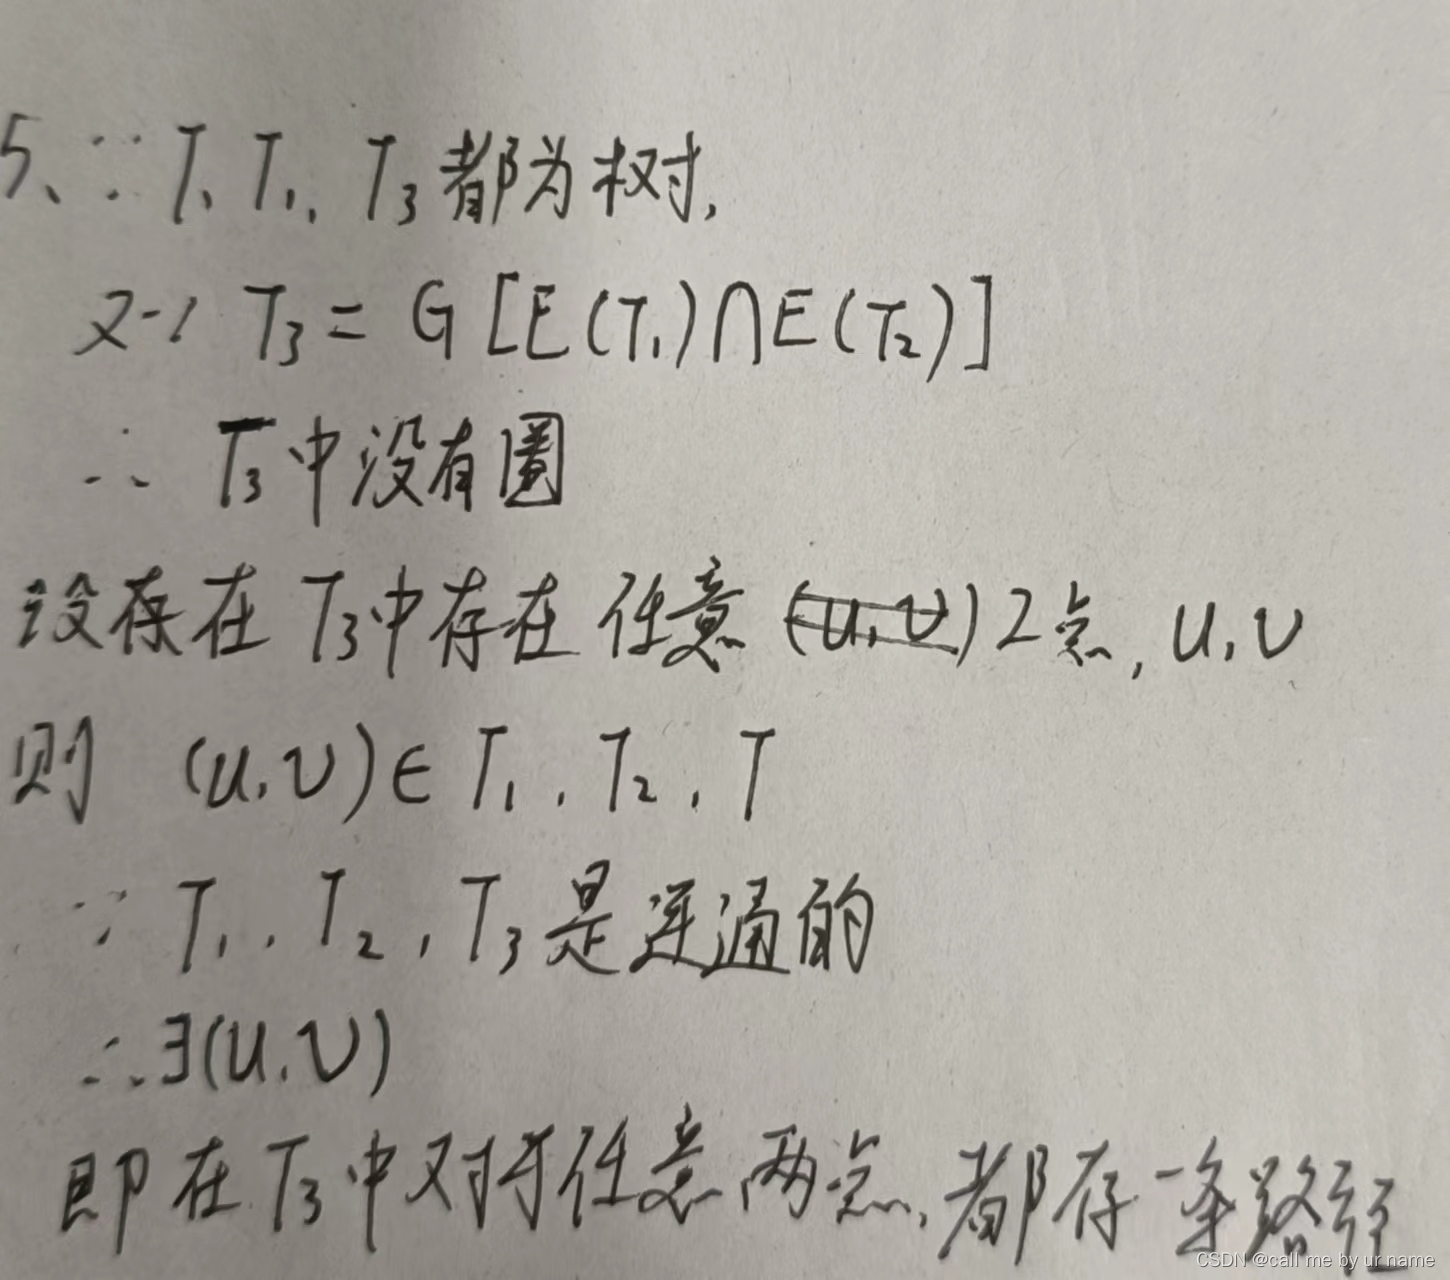 5、∵ T, T₁, T₃都为树,
又∵ T₃ = G [E(T₁)∩E(T₂)]
∴ T₃中没有圈
设存在 T₃中存在 任意 (u,v) 2点, u,v
则 (u,v)∈ T₁, T₂, T
∵ T₁, T₂, T₃是连通的
∴ ∃(u,v)
即在 T₃中对于任意两点,都存一条路径
CSDN @call me by ur name